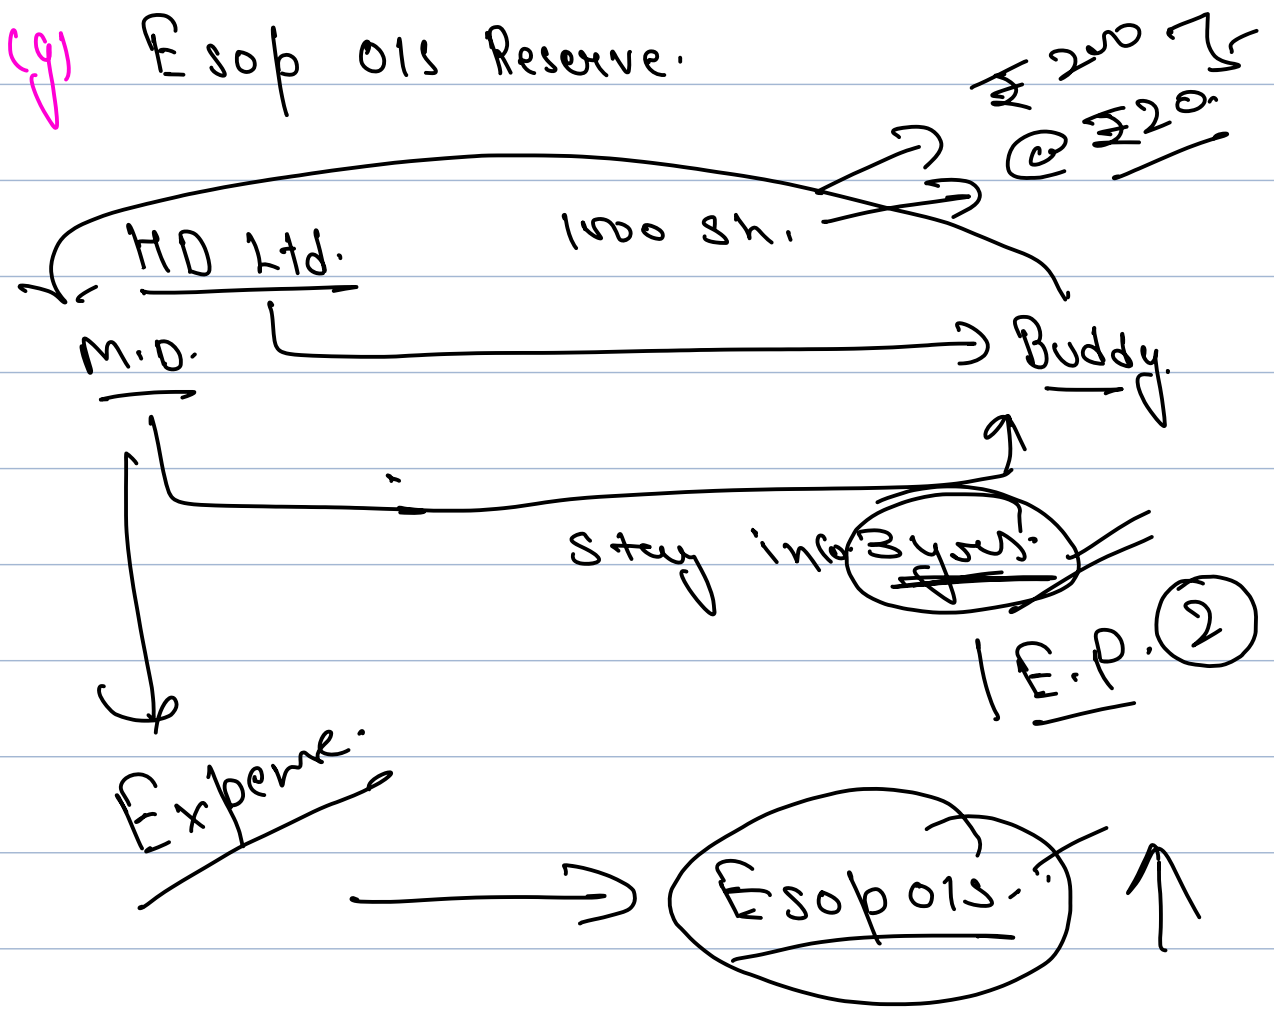 (g) Esop O/s Reserve.
₹ 200
@ ₹20.
1000 sh.
HD Ltd.
M.D.
Buddy.
Stay in co. 3 yrs.
E.P. 2
Expense.
Esop O/s.